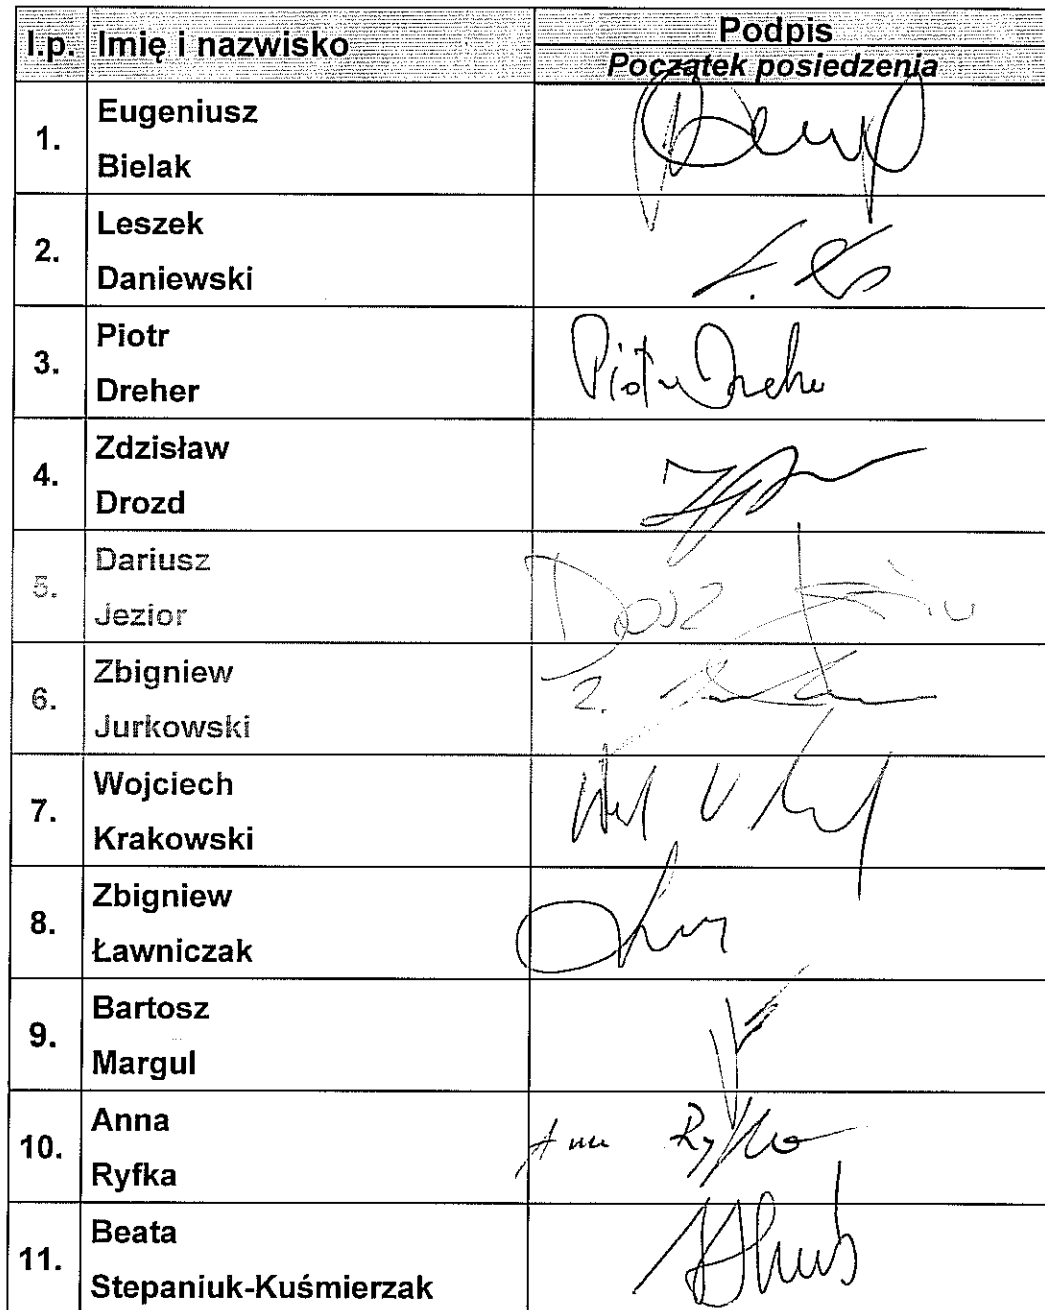 l.p. Imię i nazwisko Podpis
Początek posiedzenia
1. Eugeniusz
Bielak
2. Leszek
Daniewski
3. Piotr
Dreher
Piotr Dreher
4. Zdzisław
Drozd
5. Dariusz
Jezior
6. Zbigniew
Jurkowski
7. Wojciech
Krakowski
8. Zbigniew
Ławniczak
9. Bartosz
Margul
10. Anna
Ryfka
Anna Ryfka
11. Beata
Stepaniuk-Kuśmierzak